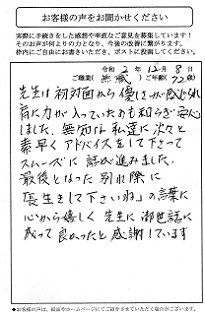 お客様の声をお聞かせください
実際に手続きをした感想や率直なご意見を募集しています！
そのお声が何よりの力となり、今後の改善に繋がります。
枠内にご自由にお書きいただき、ポストに投函してください。
令和 2年 12月 8日
ご職業( 無職 )ご年齢( 72歳)
先生は初対面から優しさが感じられ
肩に力が入っていたのも和らぎ安心
しました。無知な私達に次々と
素早くアドバイスをして下さって
スムーズに話が進みました。
最後となった別れ際に
「長生きして下さいね」の言葉に
心から優しく先生に御世話に
成って良かったと感謝しています
●お客様の声は、紙面やホームページにてご紹介させていただく場合がございます。